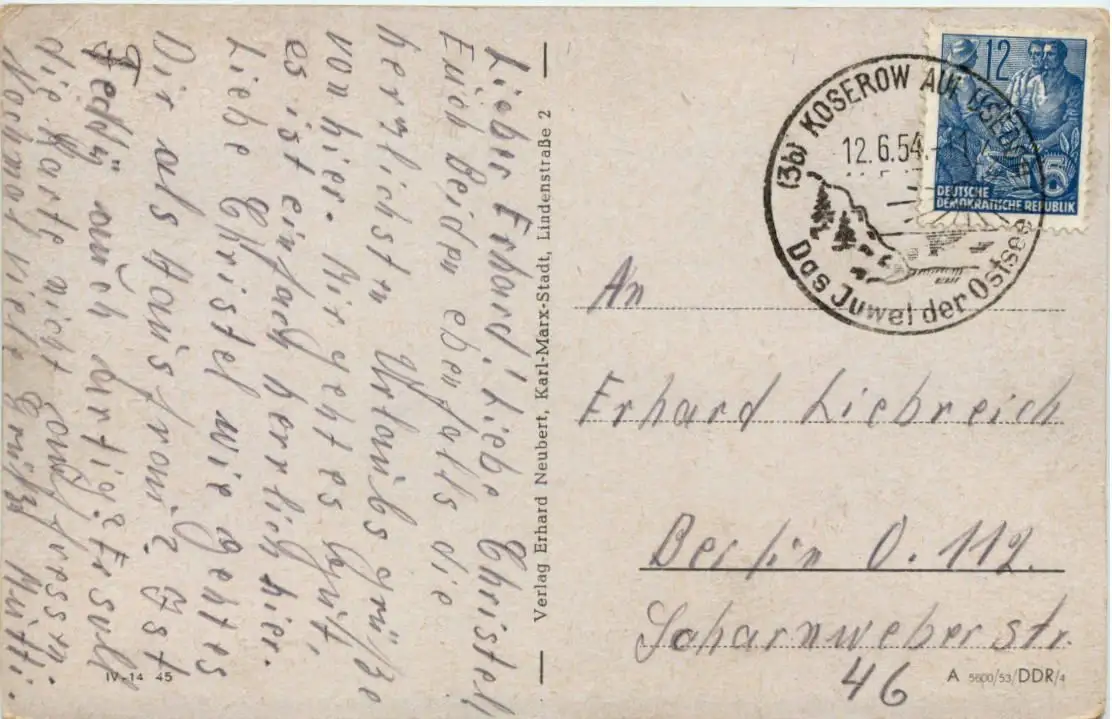 Lieber Erhard! Liebe Christel!
Euch Beiden ebenfalls die
herzlichsten Urlaubsgrüße
von hier. Mir geht es gut,
es ist einfach herrlich hier.
Liebe Christel wie geht es
Dir als Hausfrau? Ist
Teddy auch artig? Er soll
die Karte nicht auffressen.
Nochmal viele Grüße Mutti.
IV-14 45
Verlag Erhard Neubert, Karl-Marx-Stadt, Lindenstraße 2
(3b) KOSEROW AUF USEDOM
12.6.54.
Das Juwel der Ostsee
12
15
DEUTSCHE
DEMOKRATISCHE REPUBLIK
An
Erhard Liebreich
Berlin O. 112.
Scharnweberstr.
46
A 5600/53/DDR/4